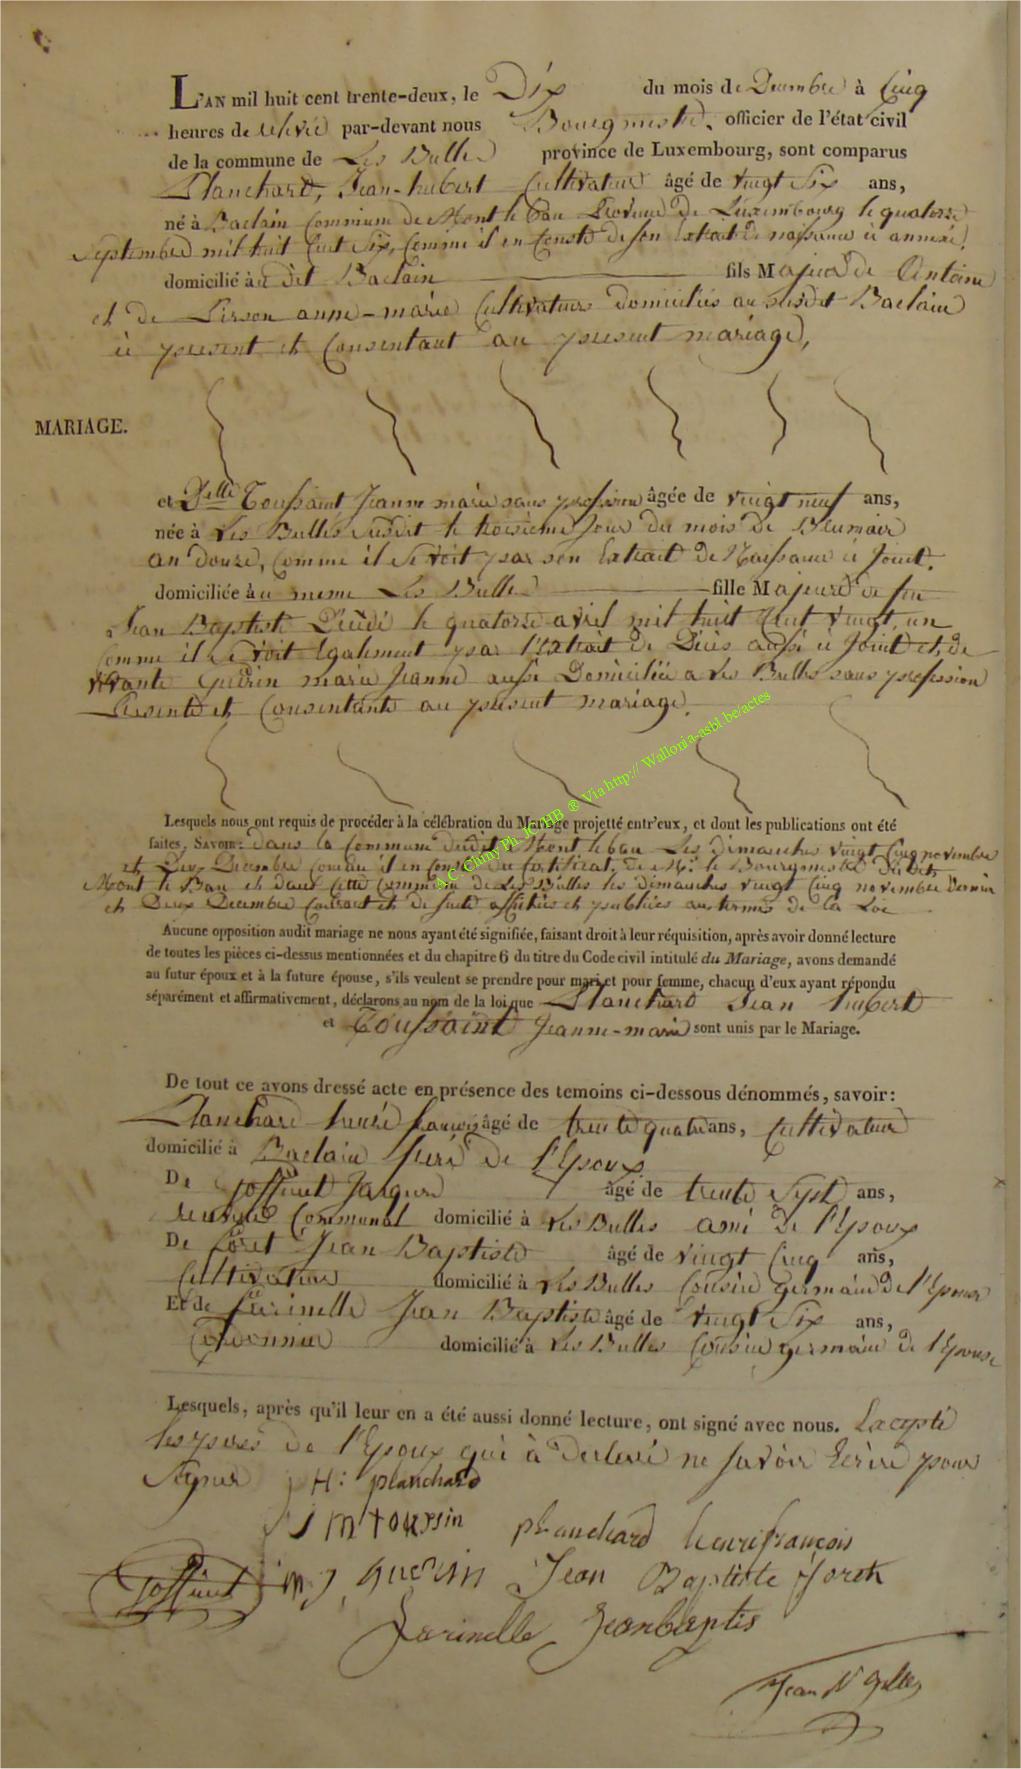 L'AN mil huit cent trente-deux, le Dix du mois de Decembre à Cinq
heures de relevée par-devant nous Bourgmestre, officier de l'état civil
de la commune de Les Bulles province de Luxembourg, sont comparus
Planchard, Jean-hubert Cultivateur âgé de vingt Six ans,
né à Baclain Commune de Mont le ban Province de Luxembourg le quatorze
Septembre mil huit Cent Six, Comme il en Conste de son Extrait de naissance ci annexé,
domicilié au dit Baclain fils Majeur de Antoine
et de Pirson anne-marie Cultivateurs domiciliés au susdit Baclain
ci present et Consentant au present mariage,
MARIAGE.
et Delle Toussaint Jeanne marie sans profession âgée de vingt neuf ans,
née à Les Bulles susdit le troisième Jour du mois de Brumaire
an douze, Comme il se voit par son Extrait de Naissance ci Joint.
domiciliée au meme Les Bulles fille Majeure de feu
Jean Baptiste Décédé le quatorze avril mil huit Cent vingt, un
Comme il se voit Egalement par l'Extrait de Décès aussi ci Joint et de
vivante Guerin marie Jeanne aussi Domiciliée a Les Bulles sans profession
Presente et Consentante au present mariage.
Lesquels nous ont requis de procéder à la célébration du Mariage projetté entr'eux, et dont les publications ont été
faites, SAVOIR: dans la Commune dudit Mont le ban Les dimanches vingt Cinq novembre
et Deux Decembre Comme il en Conste du Certificat de Mr. le Bourgmestre dudit
Mont le Ban et dans Cette Commune de Les Bulles les dimanches vingt Cinq novembre Dernier
et Deux Decembre Courant et de suite affichés et publiées aux termes de la Loi
Aucune opposition audit mariage ne nous ayant été signifiée, faisant droit à leur réquisition, après avoir donné lecture
de toutes les pièces ci-dessus mentionnées et du chapitre 6 du titre du Code civil intitulé du Mariage, avons demandé
au futur époux et à la future épouse, s'ils veulent se prendre pour mari et pour femme, chacun d'eux ayant répondu
séparément et affirmativement, déclarons au nom de la loi que Planchard Jean hubert
et Toussaint Jeanne-marie sont unis par le Mariage.
De tout ce avons dressé acte en présence des temoins ci-dessous dénommés, savoir:
Planchard henri francois âgé de trente quatre ans, Cultivateur
domicilié à Baclain frere de l'Epoux
De Joffinet Jacques âgé de trente Sept ans,
Communal domicilié à Les Bulles ami de l'Epoux
De Foret Jean Baptiste âgé de vingt Cinq ans,
Cultivateur domicilié à Les Bulles Cousin germain de l'Epouse
Et de Farinelle Jean Baptiste âgé de vingt Six ans,
Cordonnier domicilié à Les Bulles Cousin germain de l'Epouse
Lesquels, après qu'il leur en a été aussi donné lecture, ont signé avec nous. Excepté
les peres de l'Epoux qui à Declaré ne savoir Ecrire pour
Signer H: planchard
J m toussin planchard henrifrancois
Joffinet m J, guerin Jean Baptiste foret
Farinelle Jeanbaptis
Jean N Gilles
A.C. Chiny Ph. JC HB ® Via http:// Wallonia-asbl.be/actes